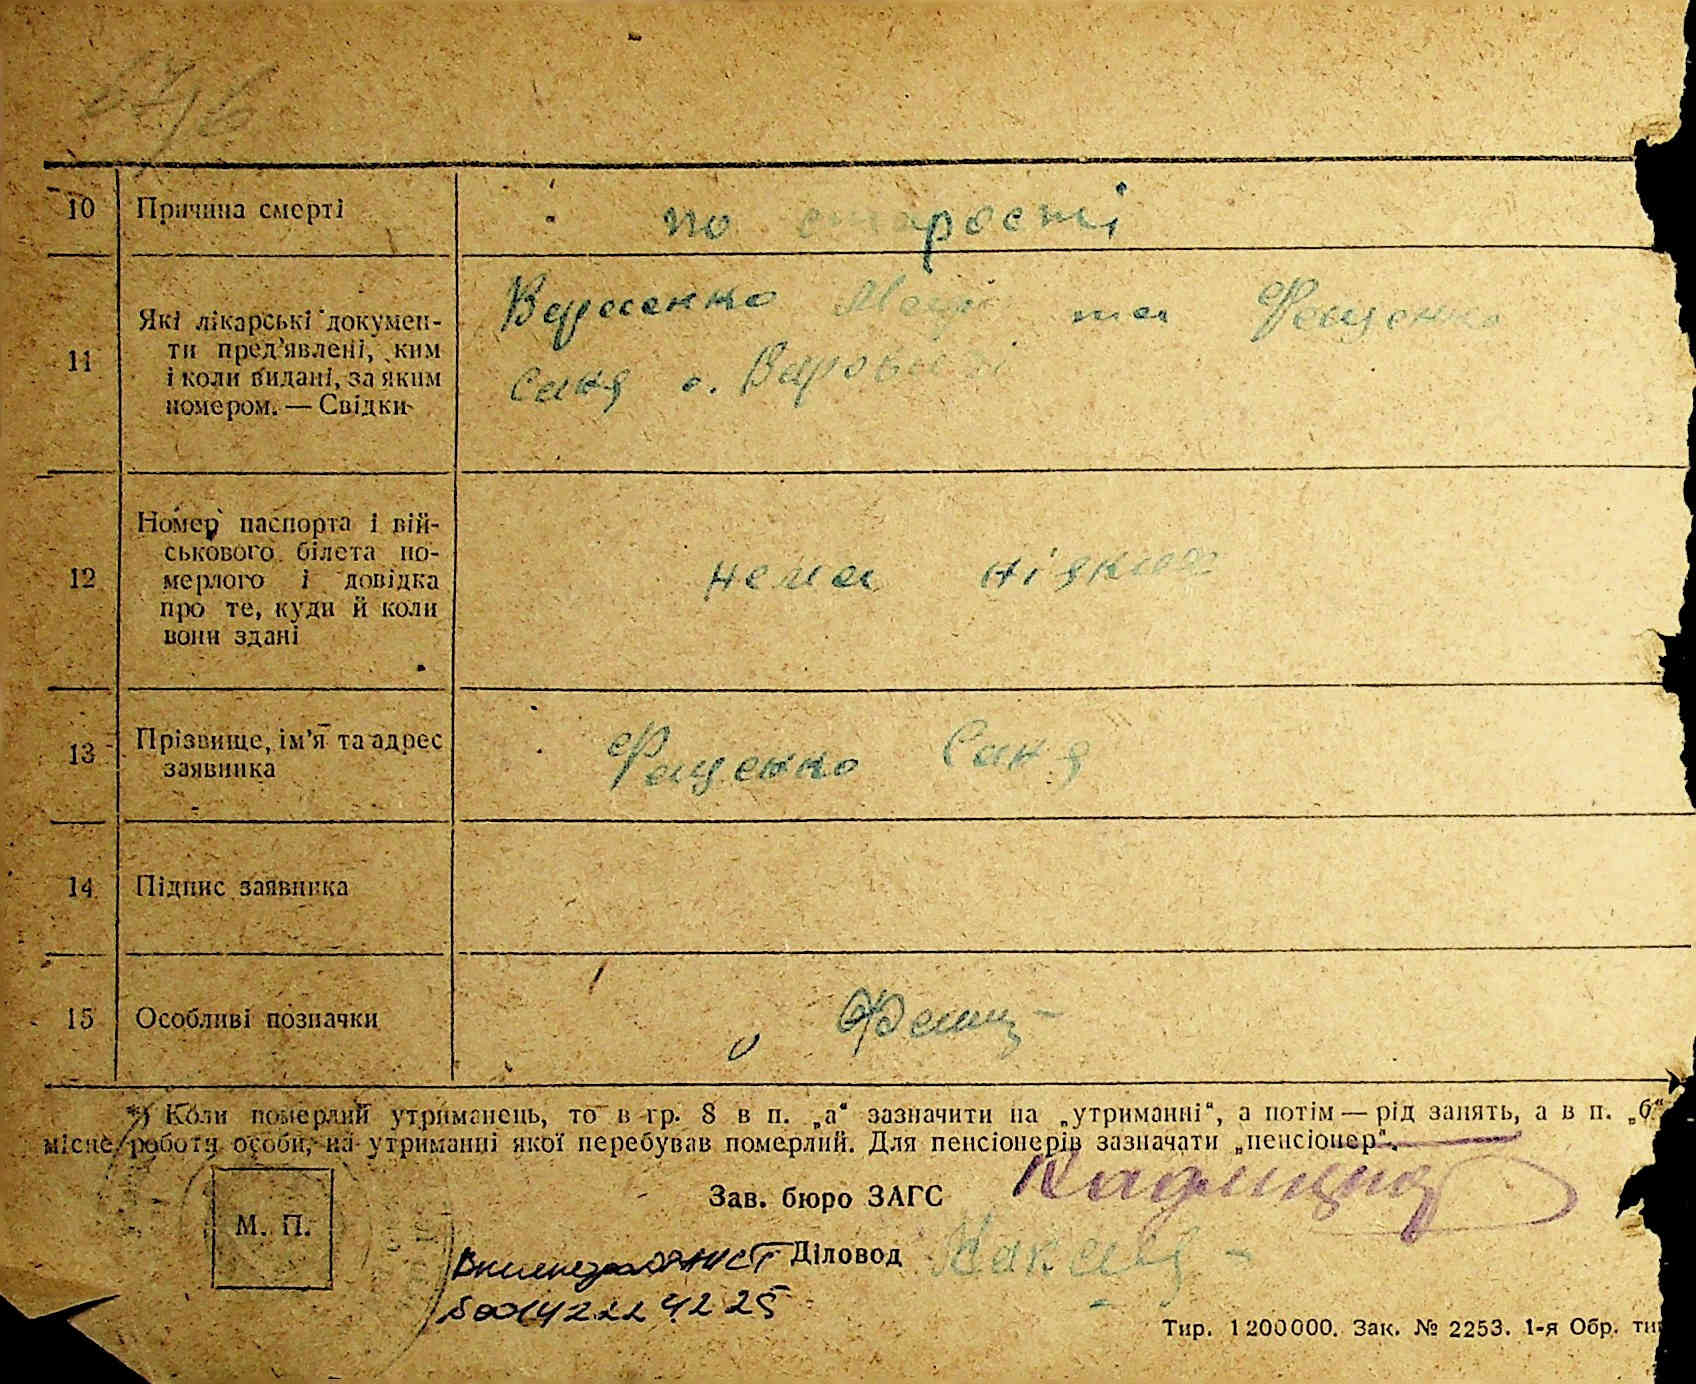 10 Причина смерті
по старості
11 Які лікарські докумен-
ти пред'явлені, ким
і коли видані, за яким
номером. — Свідки
та Фещенко
Саня с.
12 Номер паспорта і вій-
ськового білета по-
мерлого і довідка
про те, куди й коли
вони здані
нема ніяких
13 Прізвище, ім'я та адрес
заявника
Фещенко Саня
14 Підпис заявника
15 Особливі позначки
*) Коли померлий утриманець, то в гр. 8 в п. „а“ зазначити на „утриманні“, а потім — рід занять, а в п. „б“
місце роботи особи, на утриманні якої перебував померлий. Для пенсіонерів зазначати „пенсіонер“.
Зав. бюро ЗАГС
М. П.
Діловод
Тир. 1200000. Зак. № 2253. 1-я Обр.